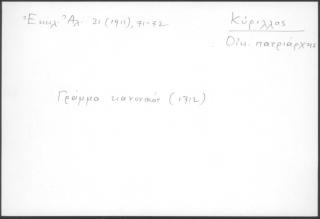 Ἐκκλ. Ἀλ. 31 (1911), 71-72
Κύριλλος
Οἰκ. πατριάρχης
Γράμμα κανονικόν (1712)